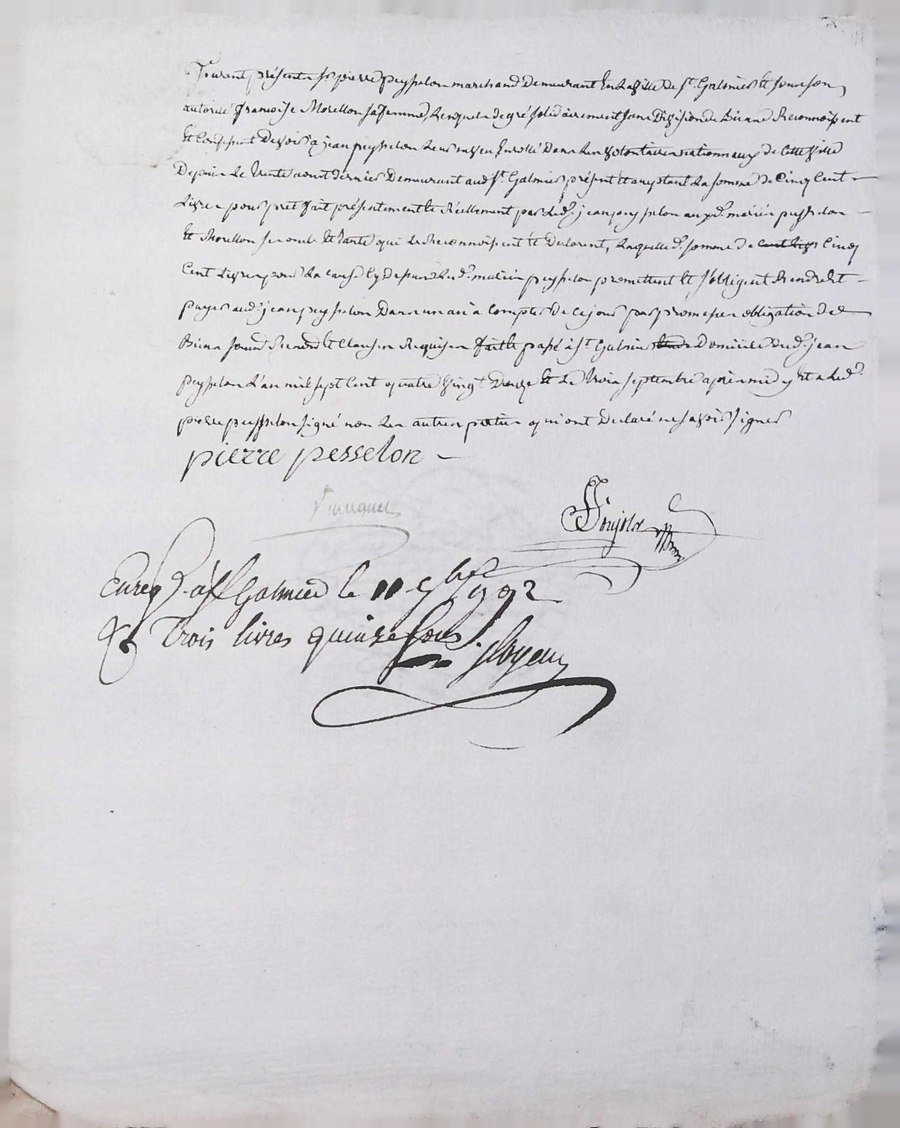 Furent présents sr pierre peysselon marchand demeurant En La Ville de St. Galmier Et sous son
autorité francoise Morellon sa femme, Lesquels de gré solidairement sans Division de Biens Reconnoissent
Et Confessent Devoir à jean peysselon Leur neveu Enrollé Dans Les Volontaires nationnaux de Cette Ville
Depuis Le trente aout dernier Demeurant aud. St. Galmier présent Et acceptant La somme de Cinq Cent
Livres pour prêt fait présentement Et Réellement par Led. jean peysselon auxd. mariés peysselon
Et Morellon qui Le Reconnoissent Et Declarent, Laquelle d. somme de Cinq
Cent Livres pour La cause Cy Dessus Lesd. mariés peysselon promettent Et s'obligent Rendre Et
payer aud. jean peysselon Dans un an à Compter de Ce jour par promesse obligation de
Biens soum. Renon. Et Clauses Requises fait Et passé à St. Galmier Domicile dud. jean
peysselon L'an mil sept Cent quatre Vingt Douze Et Le trois septembre après midy Et a Led.
pierre peysselon signé non Les autres parties qui ont Déclaré ne savoir signer
pierre pesselon
Enreg. à St Galmier le 11 7bre 1792
Trois livres quinze sous.